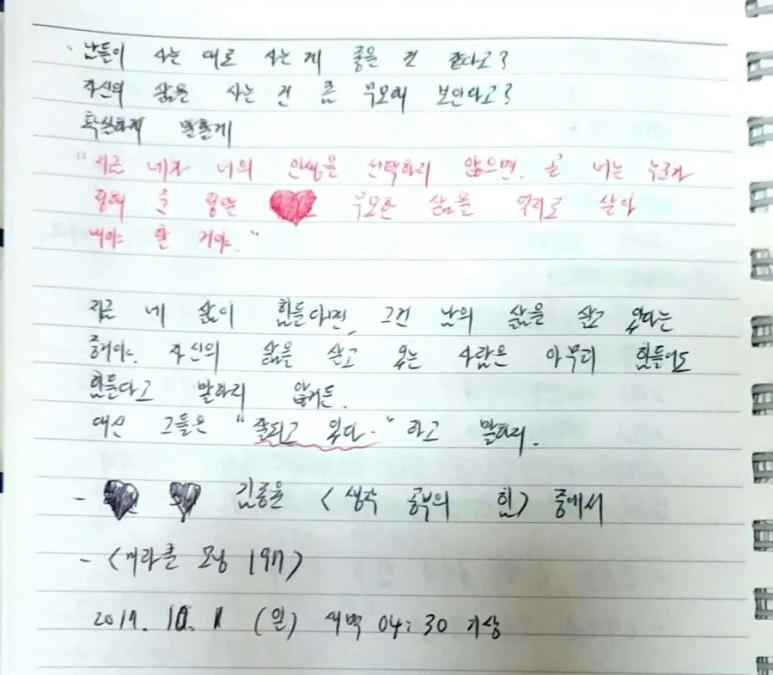 남들이 사는 대로 사는 게 좋은 것 같다고?
자신의 삶을 사는 건 좀 무모해 보인다고?
확실하게 말할게
"지금 네가 너의 인생을 선택하지 않으면, 곧 너는 누군가
정해 준 정말 무모한 삶을 억지로 살아
내야 할 거야."
지금 네 삶이 힘들다면, 그건 남의 삶을 살고 있다는
증거야. 자신의 삶을 살고 있는 사람은 아무리 힘들어도
힘들다고 말하지 않거든.
대신 그들은 "잘되고 있다." 라고 말하지.
- 김종원 <생각 공부의 힘> 중에서
- <미라클 모닝 197>
10. 1 (일) 새벽 04:30 기상